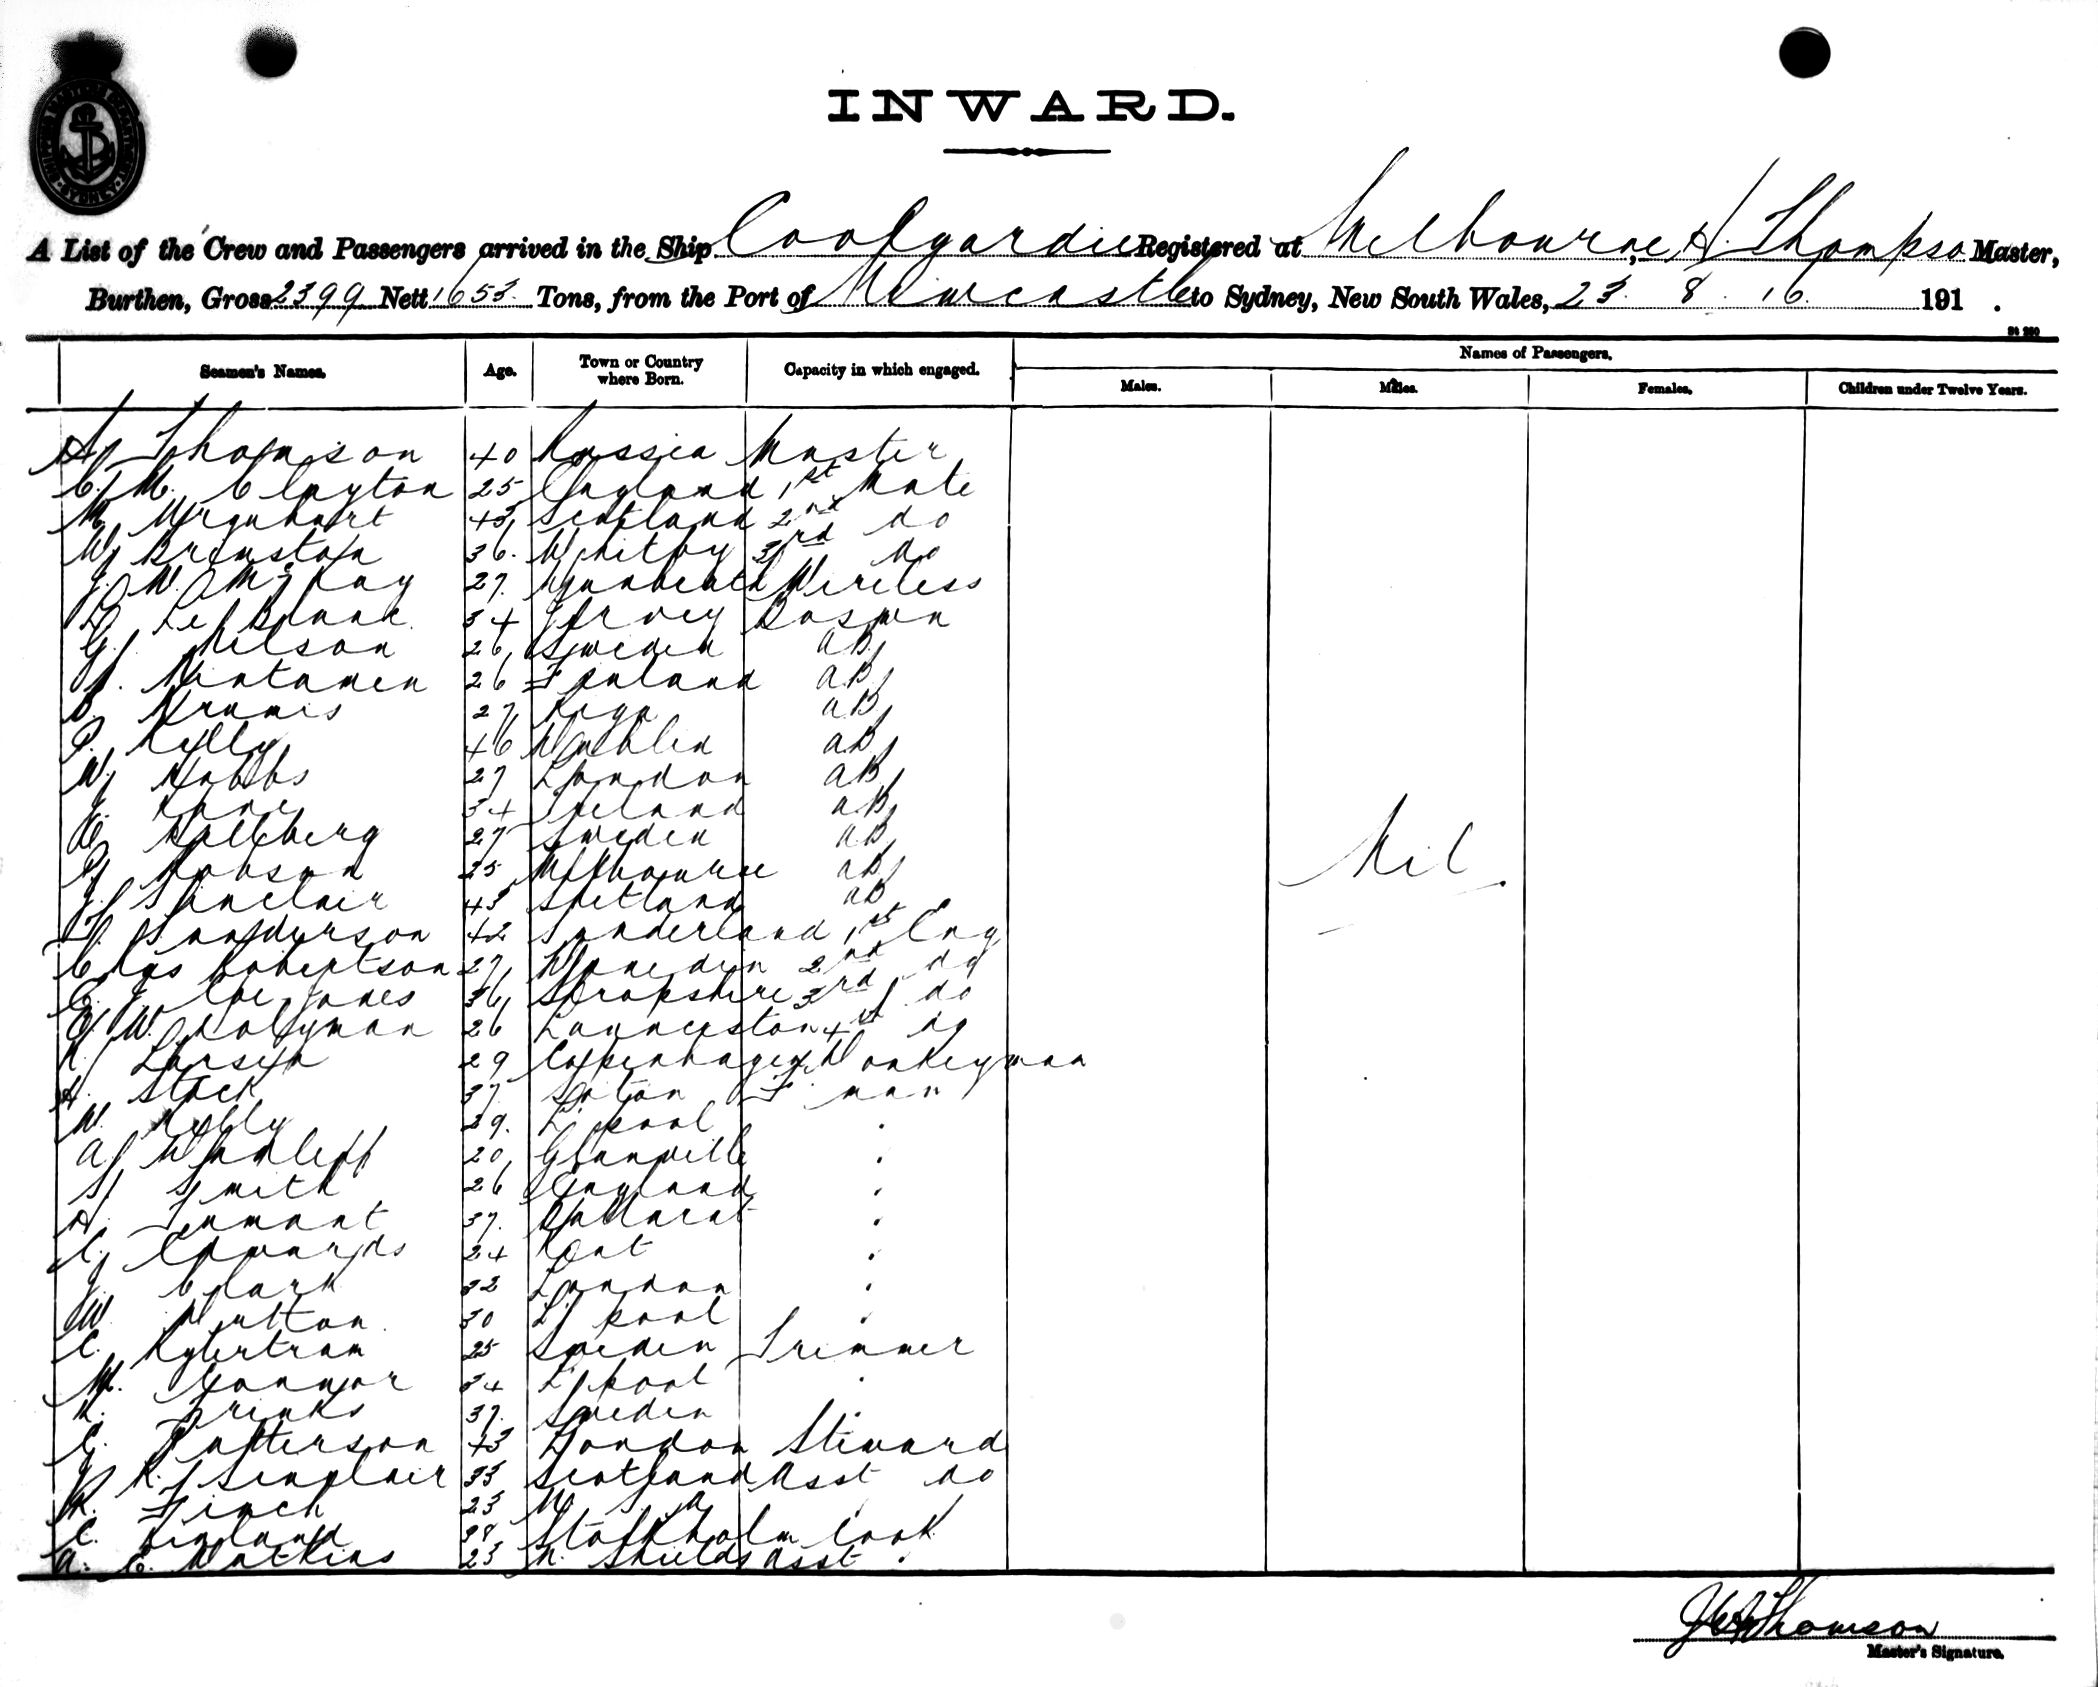 SHIPPING MASTER'S DEPARTMENT SYDNEY
INWARD.
A List of the Crew and Passengers arrived in the Ship Coolgardie Registered at Melbourne, A. Thompso Master,
Burthen, Gross 2399 Nett 1653 Tons, from the Port of Newcastle to Sydney, New South Wales, 23. 8. 16. 191 .
Seamen's Names. Age. Town or Country where Born. Capacity in which engaged. Names of Passengers.
Males. Males. Females. Children under Twelve Years.
A. Thomson 40 Russia Master
C. M. Clayton 25 England 1st Mate
M. Urquhart 43 Scotland 2nd do
W. Brimston 36. Whitby 3rd do
J. W. McKay 27. Wireless
34 Jersey Boswn
G. Nelson 26 Sweden AB
26 Finland AB
27 Riga AB
P. Kelly 46 Dublin AB
W. Hobbs 27 London AB
J. Kane 34 Ireland AB
27 Sweden AB
Robson 25 Melbourne AB
J. Sinclair 43 Shetland AB
Sanderson 42 Sunderland 1st Eng
Chas Robertson 27 Dunedin 2nd do
E. J. Coe Jones 36 Shropshire 3rd do
W. Holyman 26 Launceston 4th do
Larsen 29 Copenhagen Donkeyman
H. Stock 37. Soton F man
W. Kelly 29. L. pool "
A. 20 Glanville "
S. Smith 26 England "
A. Tennant 37. Ballarat "
C. Edwards 24 Kent "
J. Clark 22 London "
W. Hutton 30 L. pool "
C. 25 Sweden Trimmer
M. Connor 34 L. pool "
37. Sweden "
Patterson 43 London Steward
J. R. Sinclair 33 Scotland Asst do
R. Finch 23 U. S. A "
C. 38. Stockholm Cook
A. E. Watkins 23 N. Shields Asst "
Nil
Thomson
Master's Signature.